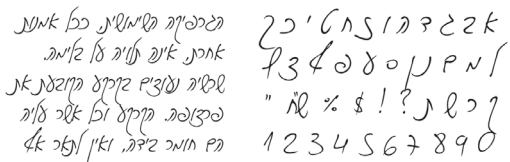 א ב ג ד ה ו ז ח ט י כ ך
ל מ ם נ ן ס ע פ ף צ ץ
ק ר ש ת ? ! $ % ש"ח "
1 2 3 4 5 6 7 8 9 0
הגרפיקה השימושית, ככל אמנות
אחרת, אינה תלויה על בלימה.
שרשיה נעוצים בקרקע הקובעת את
פרצופה. הקרקע וכל אשר עליה
הם חומר בידה, ואין לתאר אף